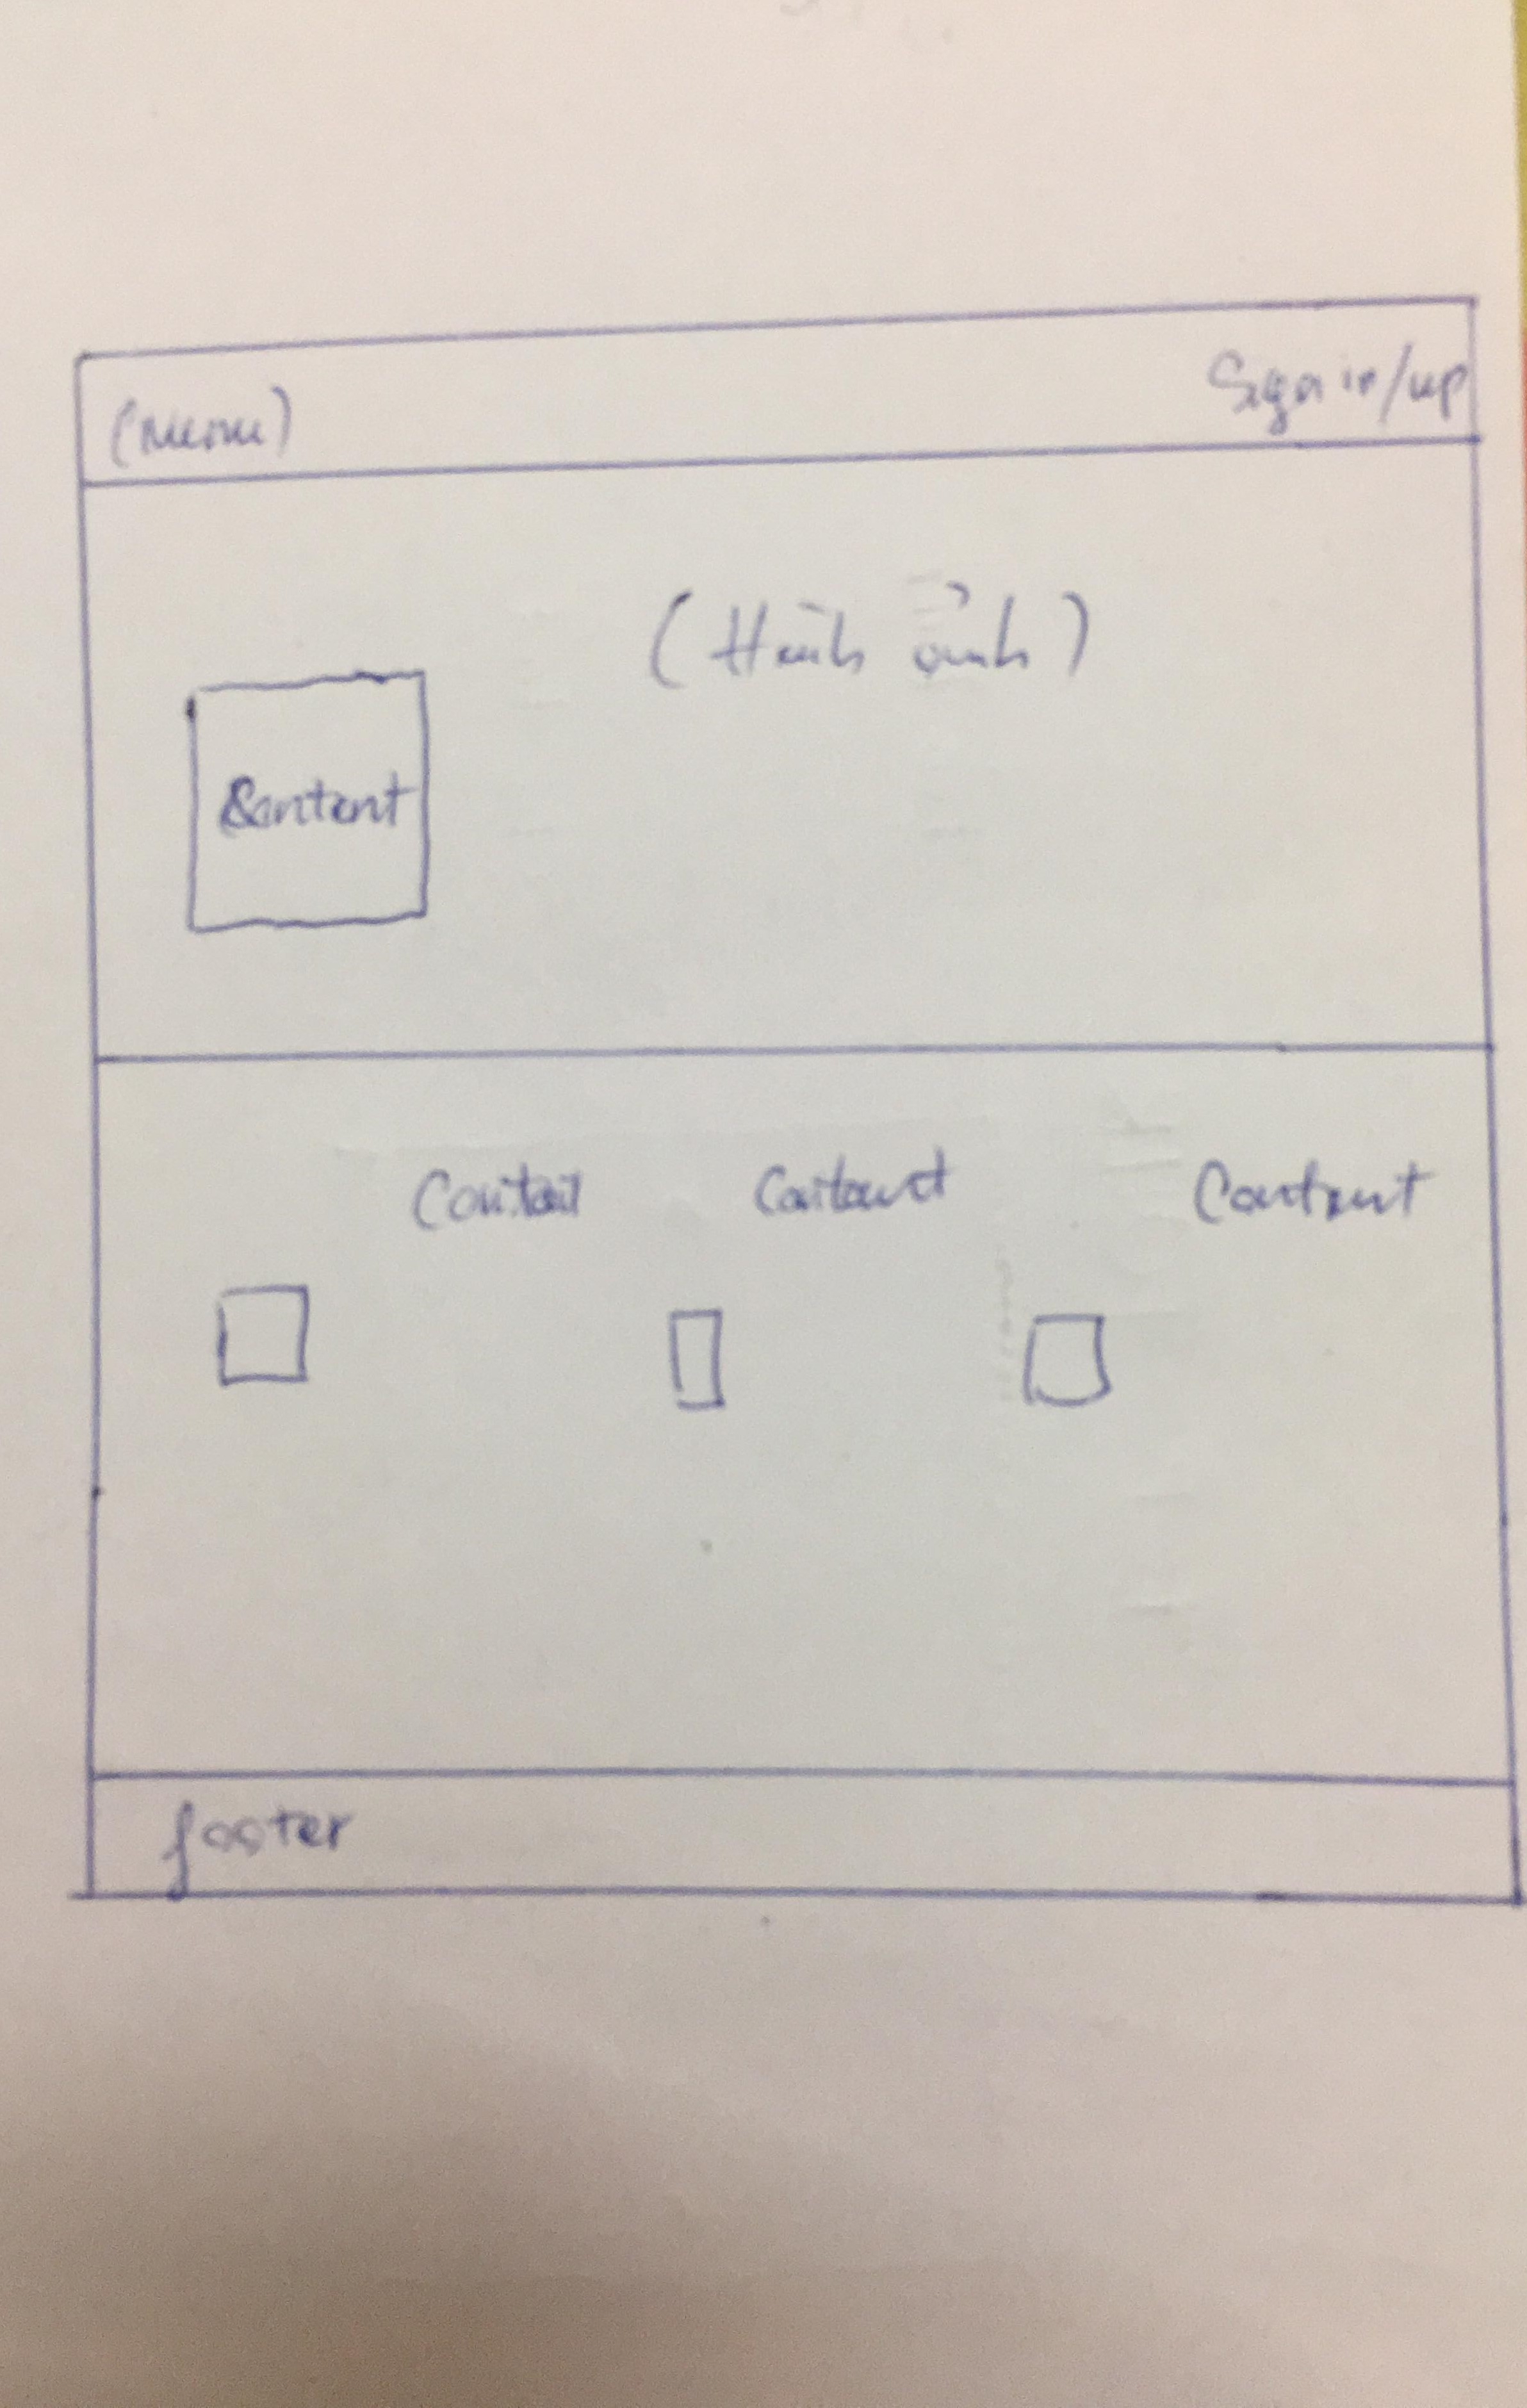 (Menu)
Sign in/up
(Hình ảnh)
Content
Content
Content
Content
footer